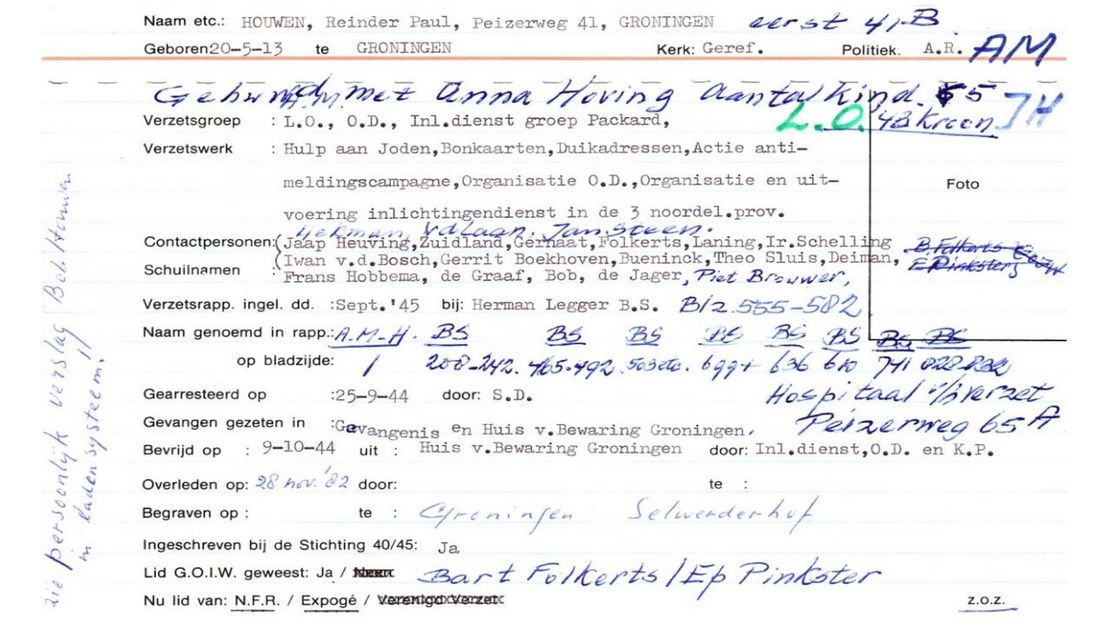 Naam etc.: HOUWEN, Reinder Paul, Peizerweg 41, GRONINGEN eerst 41B
Geboren 20-5-13 te GRONINGEN Kerk: Geref. Politiek. A.R. AM
Gehuwd met Anna Hoving Aantal kind. 5
Verzetsgroep : L.O., O.D., Inl.dienst groep Packard, L.O. 43 Kroon JH
Verzetswerk : Hulp aan Joden,Bonkaarten,Duikadressen,Actie anti-
meldingscampagne,Organisatie O.D.,Organisatie en uit- Foto
voering inlichtingendienst in de 3 noordel.prov.
Herman, vd Laan, Jan Steen.
Contactpersonen:(Jaap Heuving,Zuidland,Gernaat,Folkerts,Laning,Ir.Schelling B Folkerts
(Iwan v.d.Bosch,Gerrit Boekhoven,Bueninck,Theo Sluis,Deiman, E Pinkster
Schuilnamen : Frans Hobbema, de Graaf, Bob, de Jager, Piet Brouwer,
Verzetsrapp. ingel. dd. :Sept.'45 bij: Herman Legger B.S. Blz. 555-582
Naam genoemd in rapp.: A.M-H. BS BS BS BS BS BS BS BS
op bladzijde: 1 208-242. 465-492. 503 etc. 699+ 636 610 741 828-832
Gearresteerd op :25-9-44 door: S.D. Hospitaal v/h verzet
Gevangen gezeten in :Gevangenis en Huis v.Bewaring Groningen. Peizerweg 65A
Bevrijd op : 9-10-44 uit : Huis v.Bewaring Groningen door: Inl.dienst,O.D. en K.P.
Overleden op: 28 nov. '82 door: te :
Begraven op : te : Groningen Selwerderhof
Ingeschreven bij de Stichting 40/45: Ja
Lid G.O.I.W. geweest: Ja / Neen Bart Folkerts / Ep Pinkster
Nu lid van: N.F.R. / Expogé / Verenigd Verzet z.o.z.
zie persoonlijk verslag Bob Houwen
in ladensysteem!!